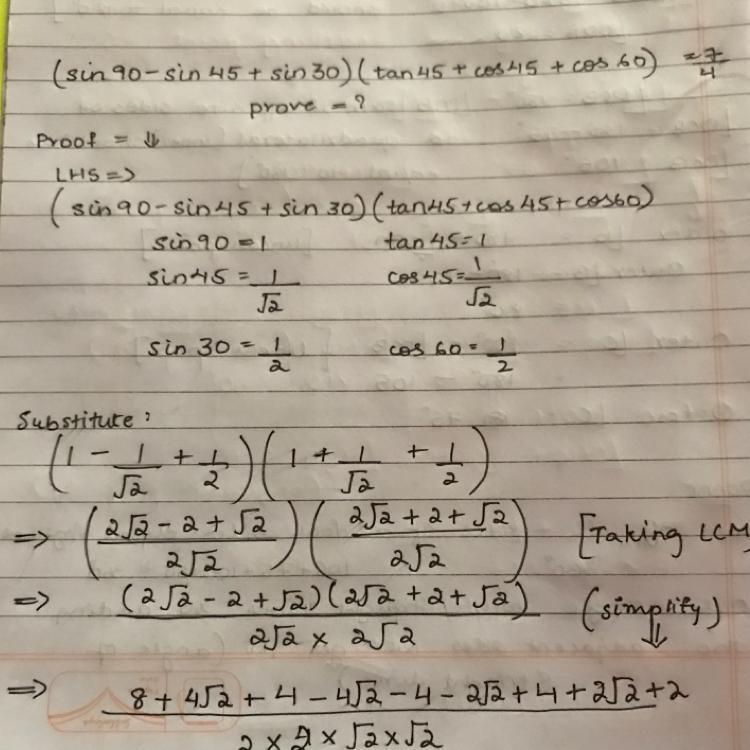 (sin 90 - sin 45 + sin 30) (tan 45 + cos 45 + cos 60) = 7/4
prove = ?
Proof = ⇓
LHS =>
(sin 90 - sin 45 + sin 30) (tan 45 + cos 45 + cos 60)
sin 90 = 1 tan 45 = 1
sin 45 = 1/√2 cos 45 = 1/√2
sin 30 = 1/2 cos 60 = 1/2
Substitute :
(1 - 1/√2 + 1/2) (1 + 1/√2 + 1/2)
=> ((2√2 - 2 + √2)/(2√2)) ((2√2 + 2 + √2)/(2√2)) [Taking LCM
=> ((2√2 - 2 + √2)(2√2 + 2 + √2))/(2√2 × 2√2) (simplify)
⇓
=> (8 + 4√2 + 4 - 4√2 - 4 - 2√2 + 4 + 2√2 + 2)/(2 × 2 × √2 × √2)